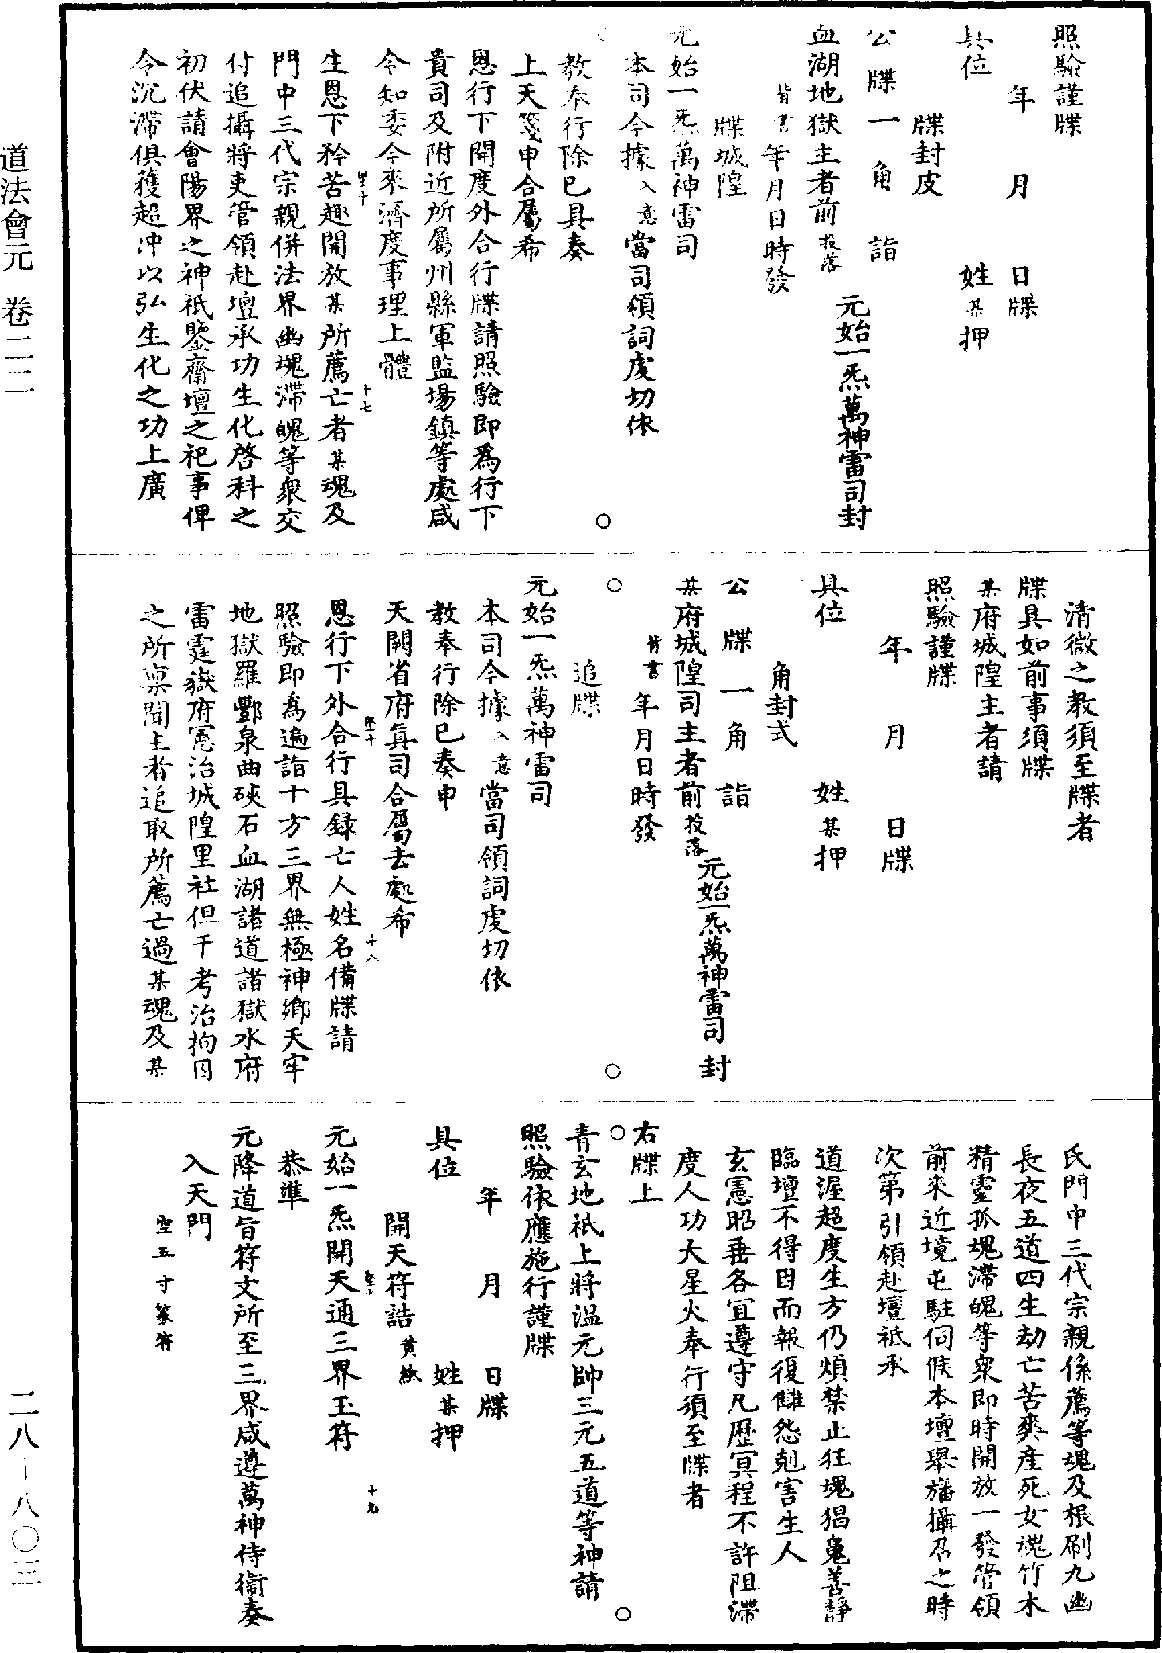 照驗謹牒
年　月　日牒
具位　姓某押
牒封皮
公牒一角詣
血湖地獄主者前投落　元始一炁萬神雷司封
背書年月日時發
牒城隍
元始一炁萬神雷司
本司今據入意當司領詞虔切依
教奉行除已具奏
上天箋申合屬希
恩行下開度外合行牒請照驗即爲行下
貴司及附近所屬州縣軍監場鎮等處咸
令知委今來濟度事理上體
生恩下矜苦趣開放某所薦亡者某魂及
十七
門中三代宗親併法界幽魂滯魄等衆交
付追攝將吏管領赴壇承功生化啓科之
初伏請會陽界之神祇鑒齋壇之祀事俾
令沉滯俱獲超沖以弘生化之功上廣
清微之教須至牒者
牒具如前事須牒
某府城隍主者請
照驗謹牒
年　月　日牒
具位　姓某押
角封式
公牒一角詣
某府城隍司主者前投落　元始一炁萬神雷司封
背書年月日時發
追牒
元始一炁萬神雷司
本司今據入意當司領詞虔切依
教奉行除已奏申
天闕省府真司合屬去處希
恩行下外合行具録亡人姓名備牒請
十八
照驗即爲遍詣十方三界無極神鄉天牢
地獄羅酆泉曲硤石血湖諸道諸獄水府
雷霆嶽府憲治城隍里社但干考治拘囚
之所稟聞主者追取所薦亡過某魂及某
氏門中三代宗親係薦等魂及根刷九幽
長夜五道四生劫亡苦爽產死女魂竹木
精靈孤魂滯魄等衆即時開放一發管領
前來近境屯駐伺候本壇舉旛攝召之時
次第引領赴壇祗承
道渥超度生方仍煩禁止狂魂猖鬼善靜
臨壇不得因而報復讎怨剋害生人
玄憲昭垂各宜遵守凡歷冥程不許阻滯
度人功大星火奉行須至牒者
右牒上
青玄地祇上將溫元帥三元五道等神請
照驗依應施行謹牒
年　月　日牒
具位　姓某押
開天符誥黃紙
元始一炁開天通三界玉符
十九
恭準
元降道旨符文所至三界咸遵萬神侍衞奏
入天門
空五寸篆符
道法會元　卷二二
二八—八〇三